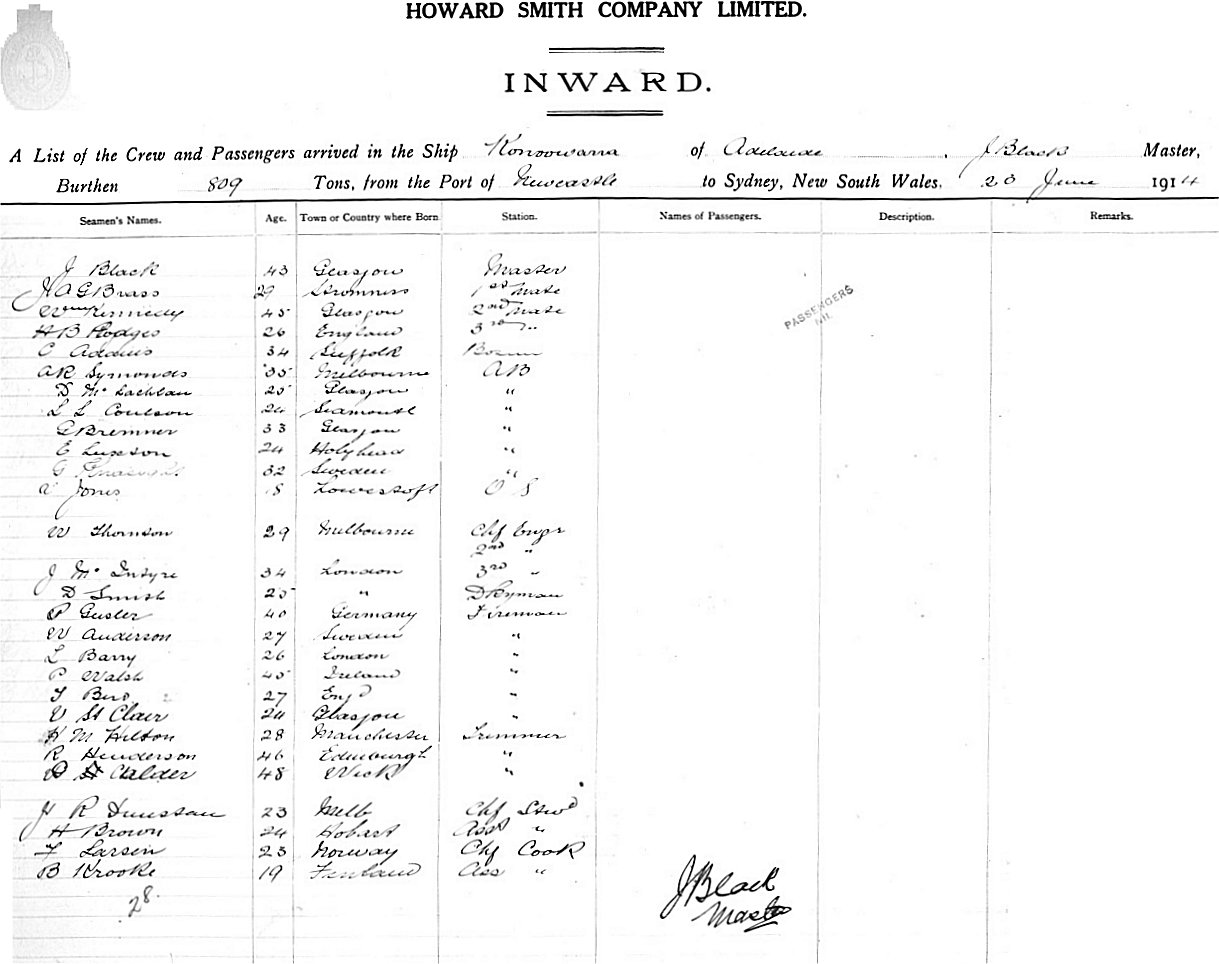 HOWARD SMITH COMPANY LIMITED.
INWARD.
A List of the Crew and Passengers arrived in the Ship Konoowarra of Adelaide, J Black Master,
Burthen 809 Tons, from the Port of Newcastle to Sydney, New South Wales, 20 June 1914
Seamen's Names. Age. Town or Country where Born. Station. Names of Passengers. Description. Remarks.
J Black 43 Glasgow Master
J A G Brass 29 Stromness 1st Mate
Wm Kennedy 45 Glasgow 2nd Mate
PASSENGERS
NIL
H B Hodges 26 England 3rd "
C Adams 34 Suffolk Bosun
A R Symonds 35 Melbourne AB
D McLachlan 25 Glasgow "
L L Coulson 24 "
G Bremner 33 Glasgow "
E Luxson 24 Holyhead "
G 32 Sweden "
V Jones 18 Lowestoft O S
W Thomson 29 Melbourne Chf Engr
2nd "
J McIntyre 34 London 3rd "
D Smith 25 " Dkyman
P Gusler 40 Germany Fireman
W Anderson 27 Sweden "
L Barry 26 London "
P Walsh 45 Ireland "
T Bird 27 Engd "
V St Clair 24 Glasgow "
H M Hilton 28 Manchester Trimmer
R Henderson 46 Edinburgh "
Calder 48 Wick "
H R Dunstan 23 Melb Chf Stwd
H Brown 24 Hobart Asst "
F Larsen 23 Norway Chf Cook
B Krooke 19 Finland Ass "
28
J Black
Master